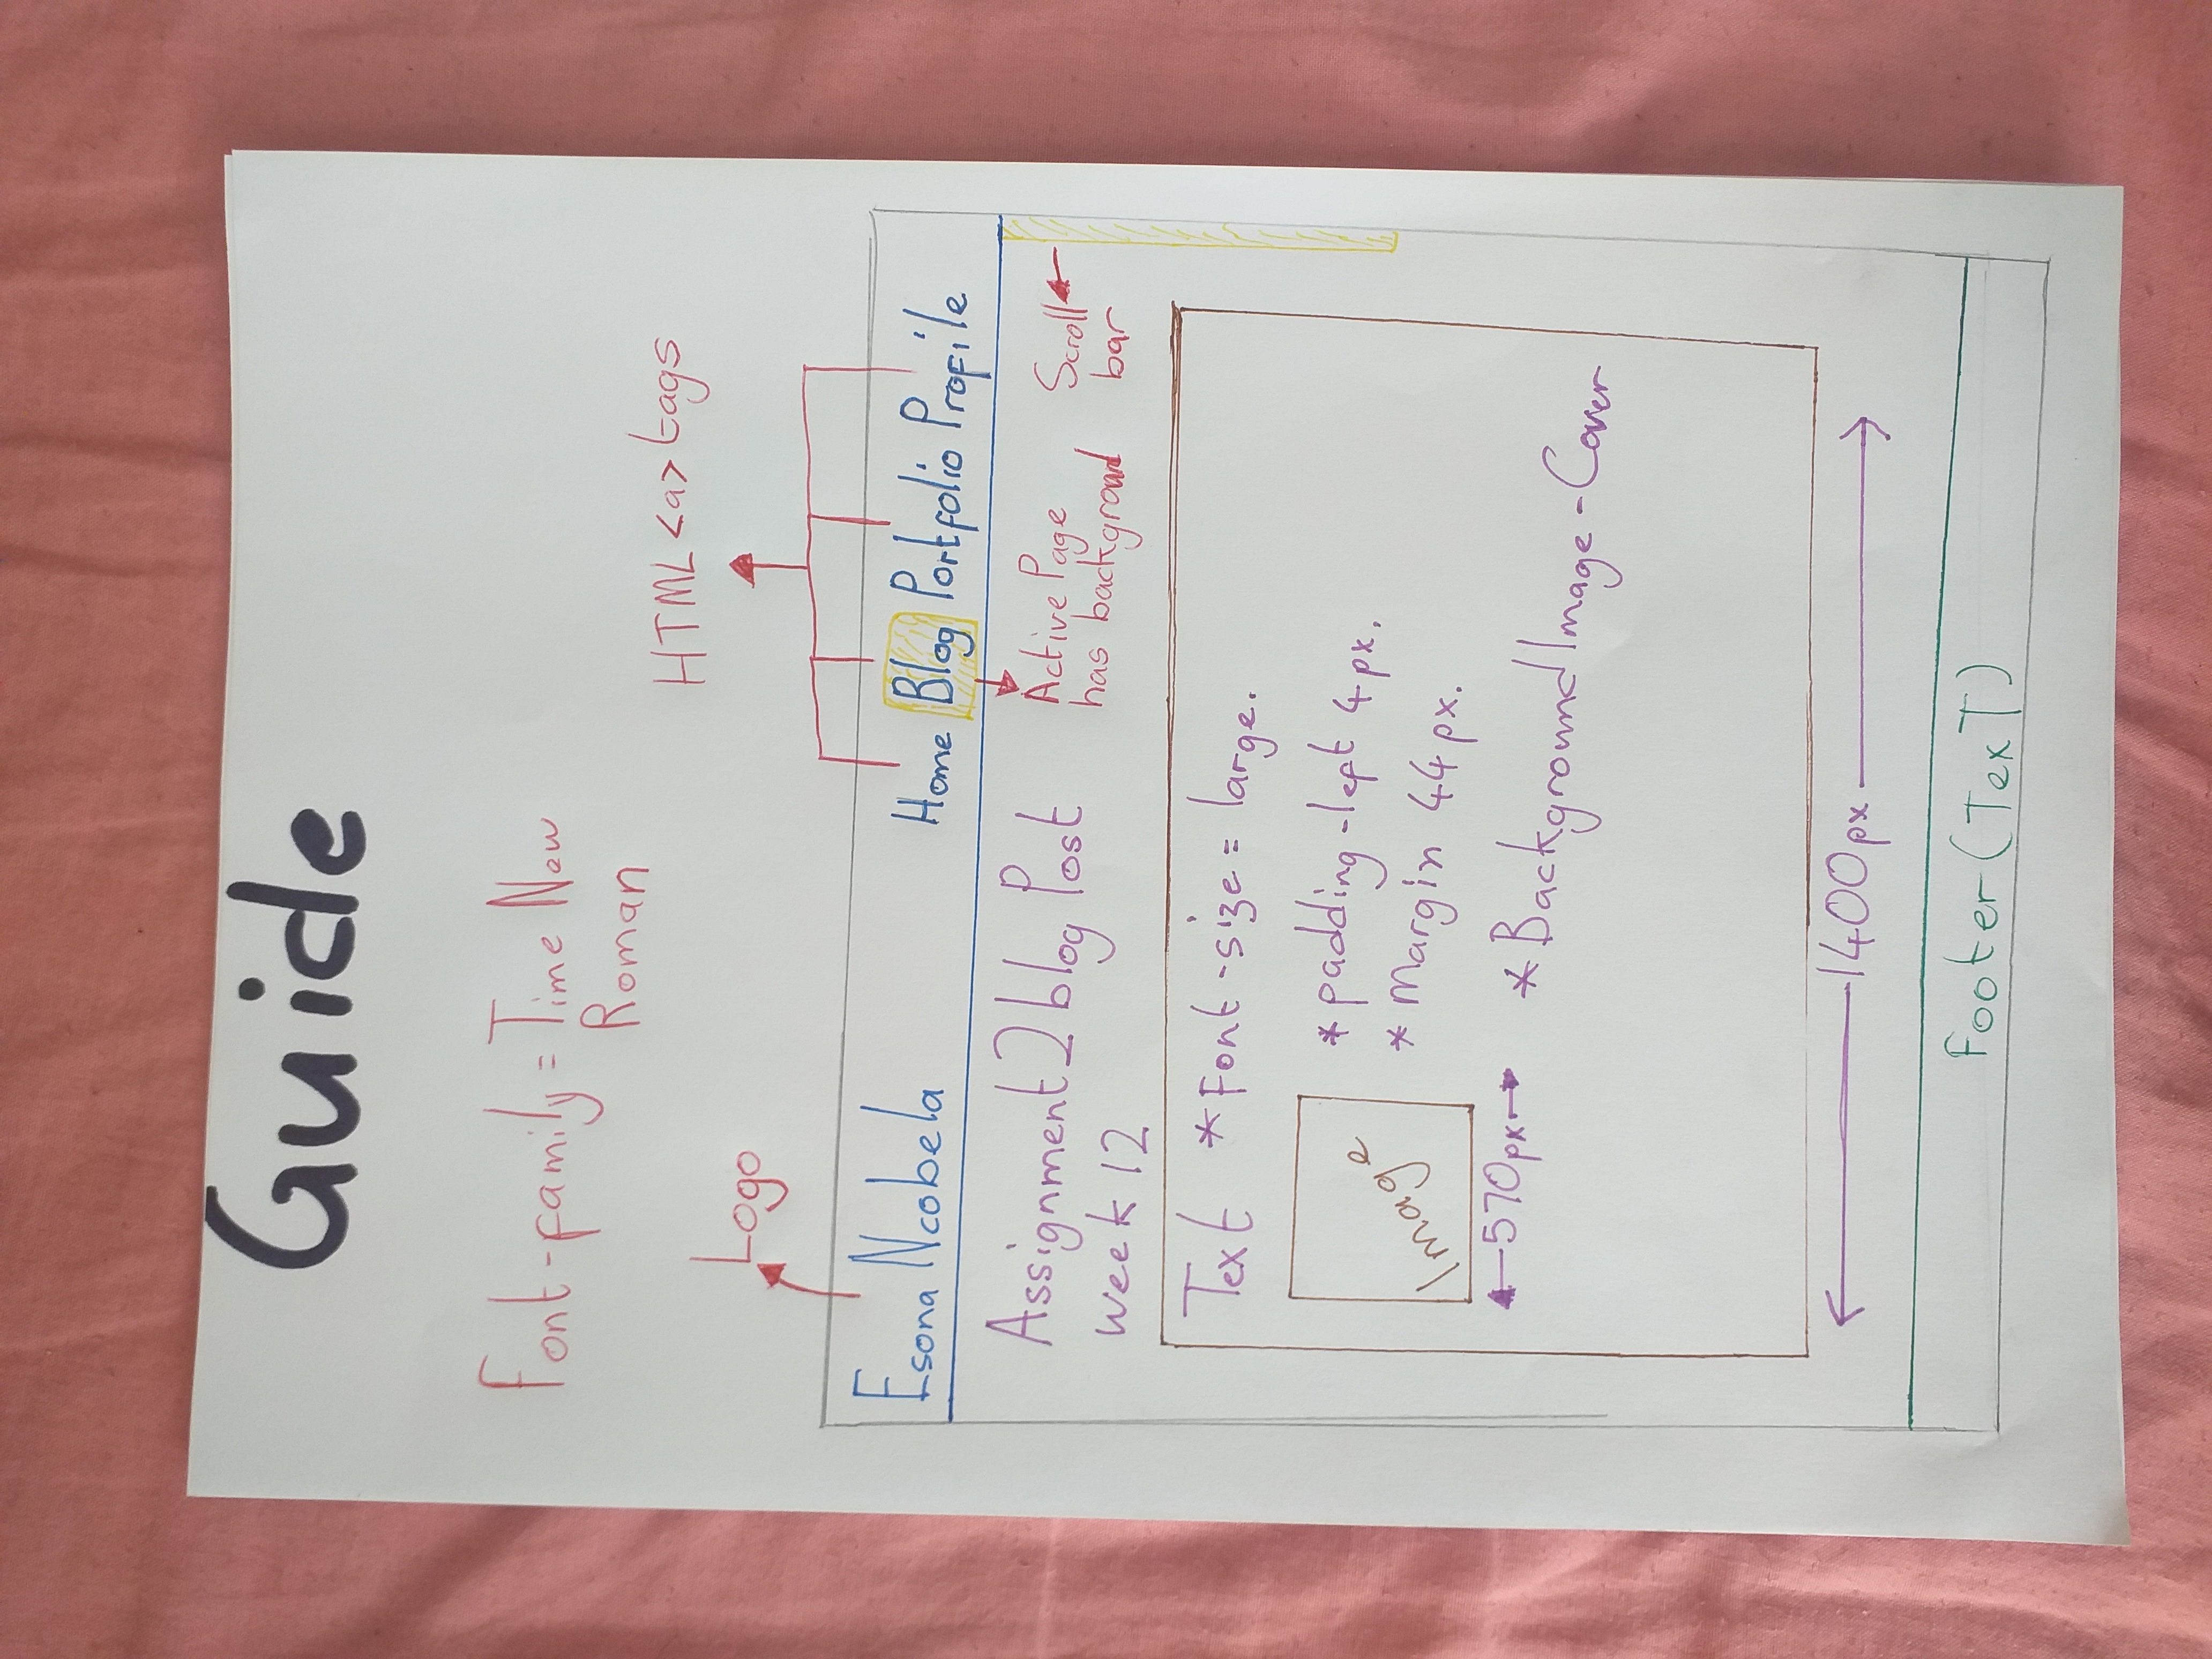 Guide
Font-family = Time New
Roman
HTML <a> tags
Logo
Esona Ncobela
Home Blog Portfolio Profile
Assignment 2 blog Post
week 12
Active Page
has background
Scroll
bar
Text * Font-size = large.
* padding-left 4px.
* Margin 44px.
Image
570px
* Background Image - Cover
1400px
Footer (TexT)